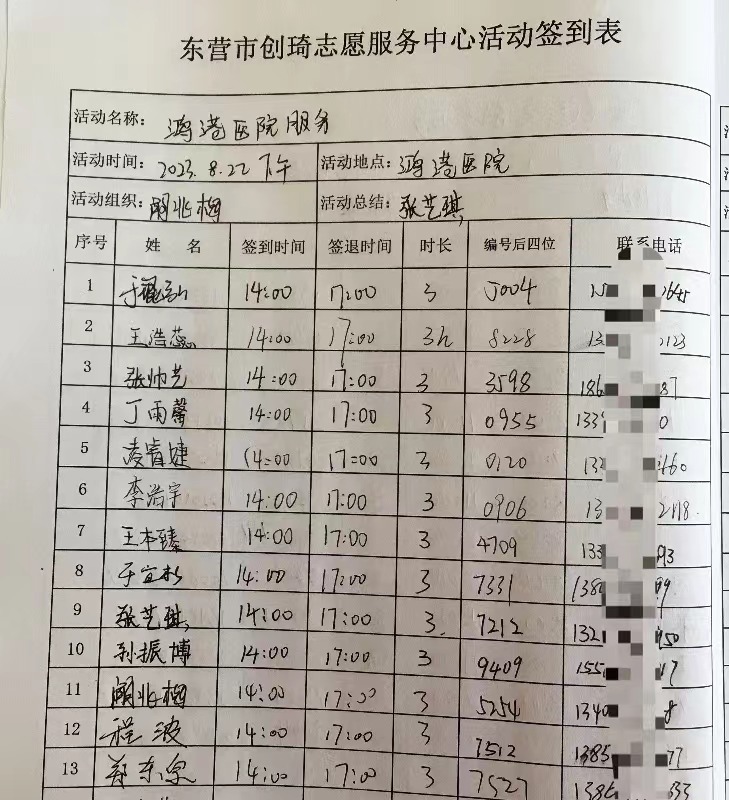 东营市创琦志愿服务中心活动签到表
活动名称： 鸿港医院服务
活动时间： 2023.8.22下午 活动地点： 鸿港医院
活动组织： 闫兆梅 活动总结： 张艺琪
序号 姓 名 签到时间 签退时间 时长 编号后四位 联系电话
1 于 14:00 17:00 3 J004
2 王浩蕊 14:00 17:00 3h 8228 13 2123
3 张帅艺 14:00 17:00 3 3598 186 87
4 丁雨馨 14:00 17:00 3 0955 133 0
5 凌睿婕 14:00 17:00 3 0120 13 460
6 李浩宇 14:00 17:00 3 0906 13
7 王本臻 14:00 17:00 3 4709 133 93
8 于宜杉 14:00 17:00 3 7331 138 99
9 张艺琪 14:00 17:00 3 7212 132 50
10 孙振博 14:00 17:00 3 9409 155 7
11 闫兆梅 14:00 17:00 3 5254 134 8
12 程波 14:00 17:00 3 7512 1385 77
13 14:00 17:00 3 7527 138 33